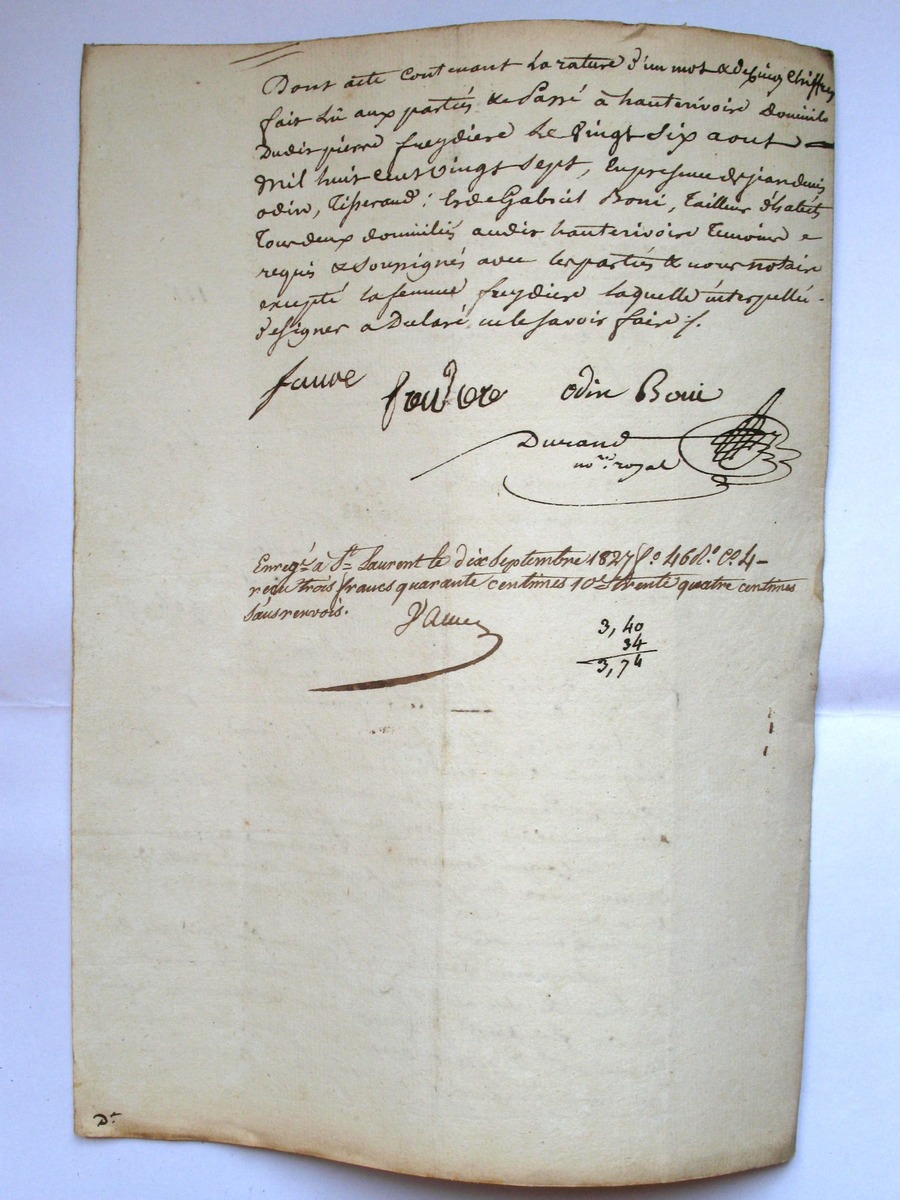 Dont acte contenant la rature d'un mot & de cinq chiffres
fait lû aux parties & Passé à hauterivoire domicile
Dudit pierre freydiere Le vingt six aout
mil huit cent vingt sept, En presence de jean denis
odin, Tisserand; & de Gabriel Boni, Tailleur d'habits
Tous deux domiciliés audit hauterivoire Temoins
requis & soussignés avec les parties & nous notaire
excepté la femme freydiere laquelle interpellée
de signer a Declaré ne le savoir faire ./.
fauve
odin Boni
Durand
no.re royal
Enreg.é a S.t Laurent le dix Septembre 1827 f.o 46 R.o C.e 4
reçu trois francs quarante centimes 10.e trente quatre centimes
Sans renvois.
3,40
34
3,74
D.t